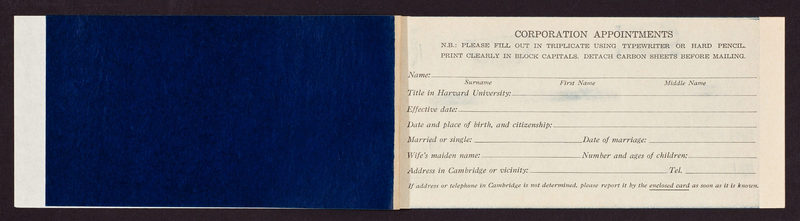 CORPORATION APPOINTMENTS
N.B.: PLEASE FILL OUT IN TRIPLICATE USING TYPEWRITER OR HARD PENCIL.
PRINT CLEARLY IN BLOCK CAPITALS. DETACH CARBON SHEETS BEFORE MAILING.
Name:
Surname First Name Middle Name
Title in Harvard University:
Effective date:
Date and place of birth, and citizenship:
Married or single: Date of marriage:
Wife's maiden name: Number and ages of children:
Address in Cambridge or vicinity: Tel.
If address or telephone in Cambridge is not determined, please report it by the enclosed card as soon as it is known.